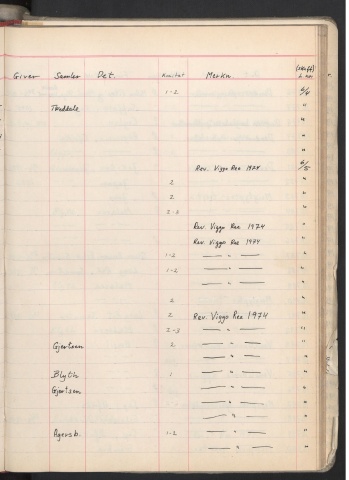 Giver Samler Det. Kvalitet Merkn. (skuff) L. nr
1-2 6/4
"
"
"
Rev. Viggo Ree 1974 6/5
2 "
2 "
2-3 "
Rev. Viggo Ree 1974 "
Rev. Viggo Ree 1974 "
1-2 — " — "
1-2 — " — "
— " — "
2 "
2 Rev. Viggo Ree 1974 "
2-3 — " — "
Gjertsen 2 — " — "
— " — "
Blyth 1 — " — "
Gjertsen — " — "
— " — "
— " — "
Agersb. 1-2 — " — "
— " — "